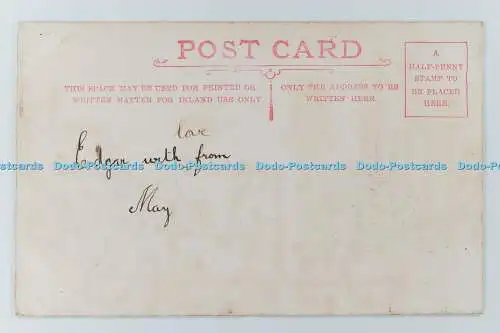 POST CARD
THIS SPACE MAY BE USED FOR PRINTED OR
WRITTEN MATTER FOR INLAND USE ONLY
ONLY THE ADDRESS TO BE
WRITTEN HERE.
A
HALF-PENNY
STAMP TO
BE PLACED
HERE.
love
Edgar with from
May
Dodo-Postcards Dodo-Postcards Dodo-Postcards Dodo-Postcards Dodo-Postcards Dodo-Postcards